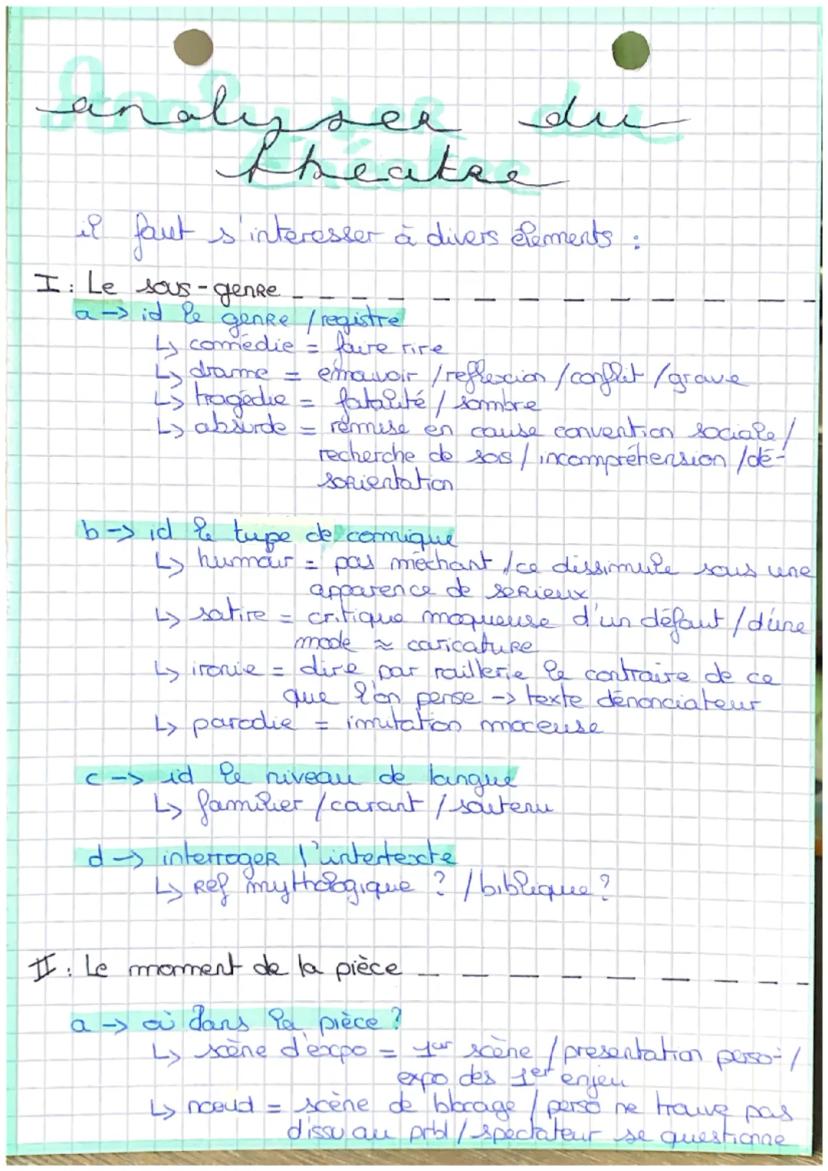 analyser du
théatre
il faut s'interesser à divers élements :
I : Le sous-genre
a → id le genre / registre
↳ comédie = faire rire
↳ drame = émouvoir / reflexion / conflit / grave
↳ tragédie = fatalité / sombre
↳ absurde = remise en cause convention sociale /
recherche de sos / incompréhension / dé-
sorientation
b → id le type de comique
↳ humour = pas méchant / ce dissimule sous une
apparence de serieux
↳ satire = critique moqueuse d'un défaut / d'une
mode ≈ caricature
↳ ironie = dire par raillerie le contraire de ce
que l'on pense → texte dénonciateur
↳ parodie = imitation moceuse
c → id le niveau de langue
↳ familier / courant / soutenu
d → interroger l'intertexte
↳ Ref mythologique ? / biblique ?
II : Le moment de la pièce
a → où dans la pièce ?
↳ scène d'expo = 1er scène / presentation perso /
expo des 1er enjeu
↳ noeud = scène de blocage / perso ne trouve pas
d'issu au prbl / spectateur se questionne